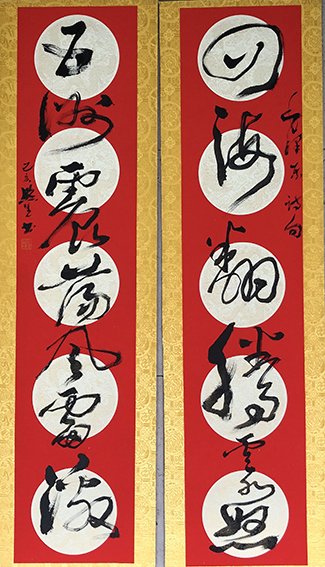 四海翻腾云水怒
毛泽东诗句
五洲震荡风雷激